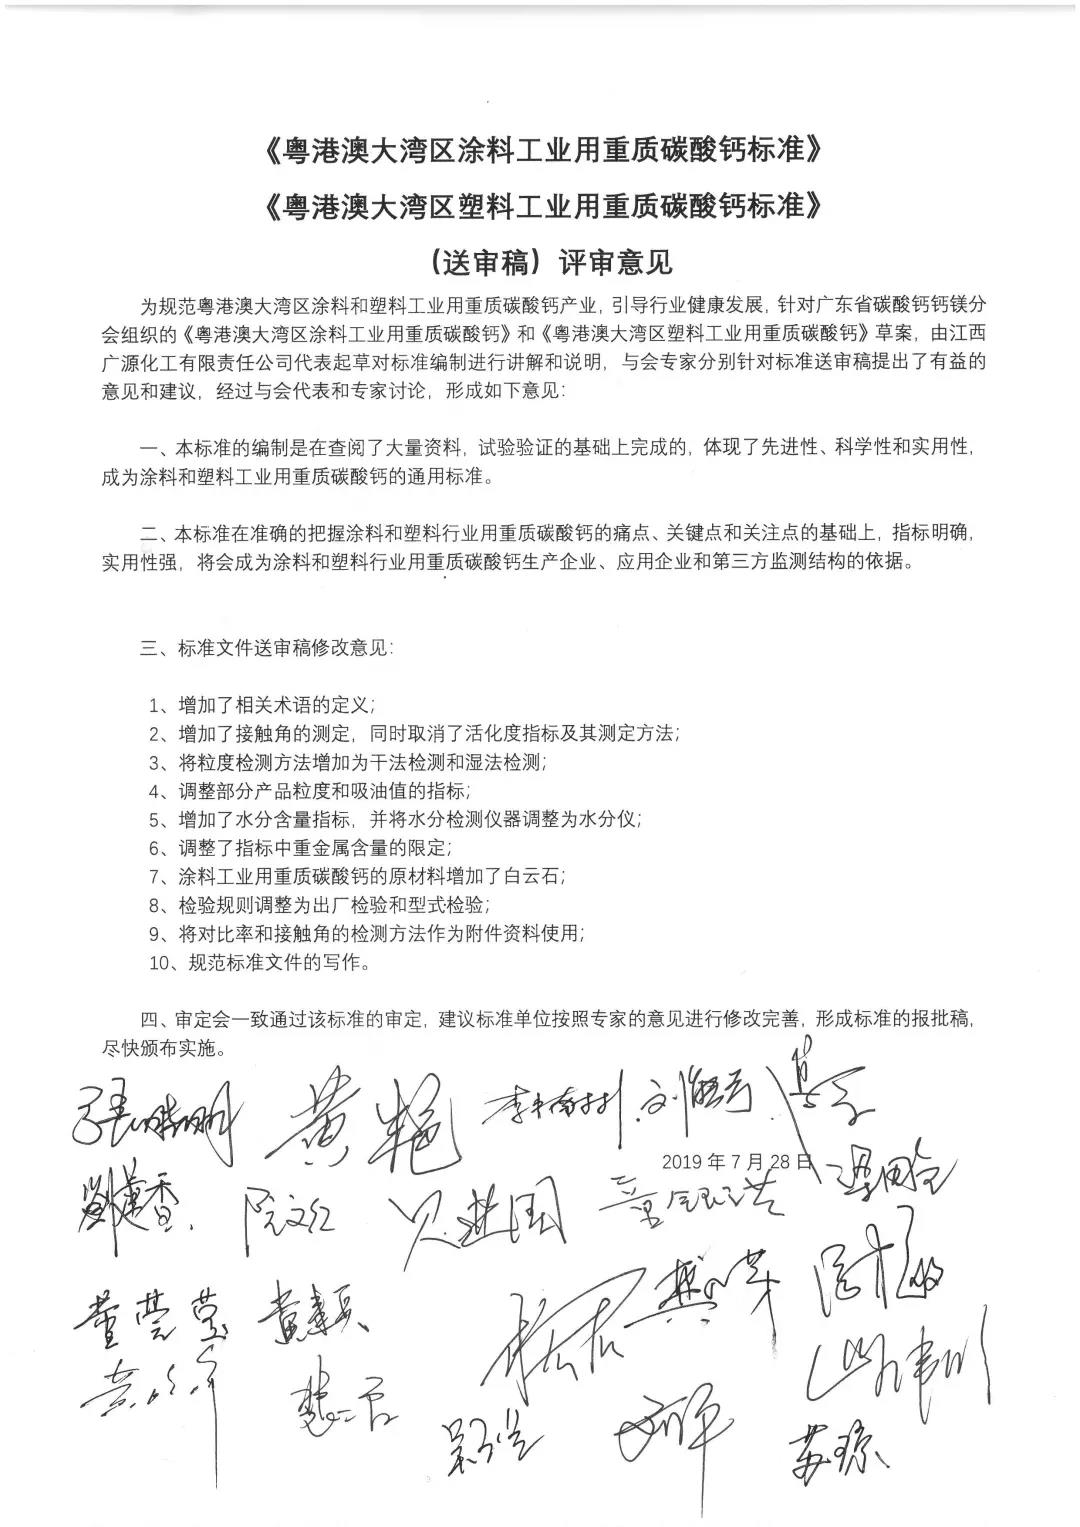 《粤港澳大湾区涂料工业用重质碳酸钙标准》
《粤港澳大湾区塑料工业用重质碳酸钙标准》
（送审稿）评审意见
为规范粤港澳大湾区涂料和塑料工业用重质碳酸钙产业，引导行业健康发展，针对广东省碳酸钙钙镁分
会组织的《粤港澳大湾区涂料工业用重质碳酸钙》和《粤港澳大湾区塑料工业用重质碳酸钙》草案，由江西
广源化工有限责任公司代表起草对标准编制进行讲解和说明，与会专家分别针对标准送审稿提出了有益的
意见和建议，经过与会代表和专家讨论，形成如下意见：
一、本标准的编制是在查阅了大量资料，试验验证的基础上完成的，体现了先进性、科学性和实用性，
成为涂料和塑料工业用重质碳酸钙的通用标准。
二、本标准在准确的把握涂料和塑料行业用重质碳酸钙的痛点、关键点和关注点的基础上，指标明确，
实用性强，将会成为涂料和塑料行业用重质碳酸钙生产企业、应用企业和第三方监测结构的依据。
三、标准文件送审稿修改意见：
1、增加了相关术语的定义；
2、增加了接触角的测定，同时取消了活化度指标及其测定方法；
3、将粒度检测方法增加为干法检测和湿法检测；
4、调整部分产品粒度和吸油值的指标；
5、增加了水分含量指标，并将水分检测仪器调整为水分仪；
6、调整了指标中重金属含量的限定；
7、涂料工业用重质碳酸钙的原材料增加了白云石；
8、检验规则调整为出厂检验和型式检验；
9、将对比率和接触角的检测方法作为附件资料使用；
10、规范标准文件的写作。
四、审定会一致通过该标准的审定，建议标准单位按照专家的意见进行修改完善，形成标准的报批稿，
尽快颁布实施。
黄艳
2019 年 7 月 28 日
阮文红
童银洪
董莞莹
苏琼